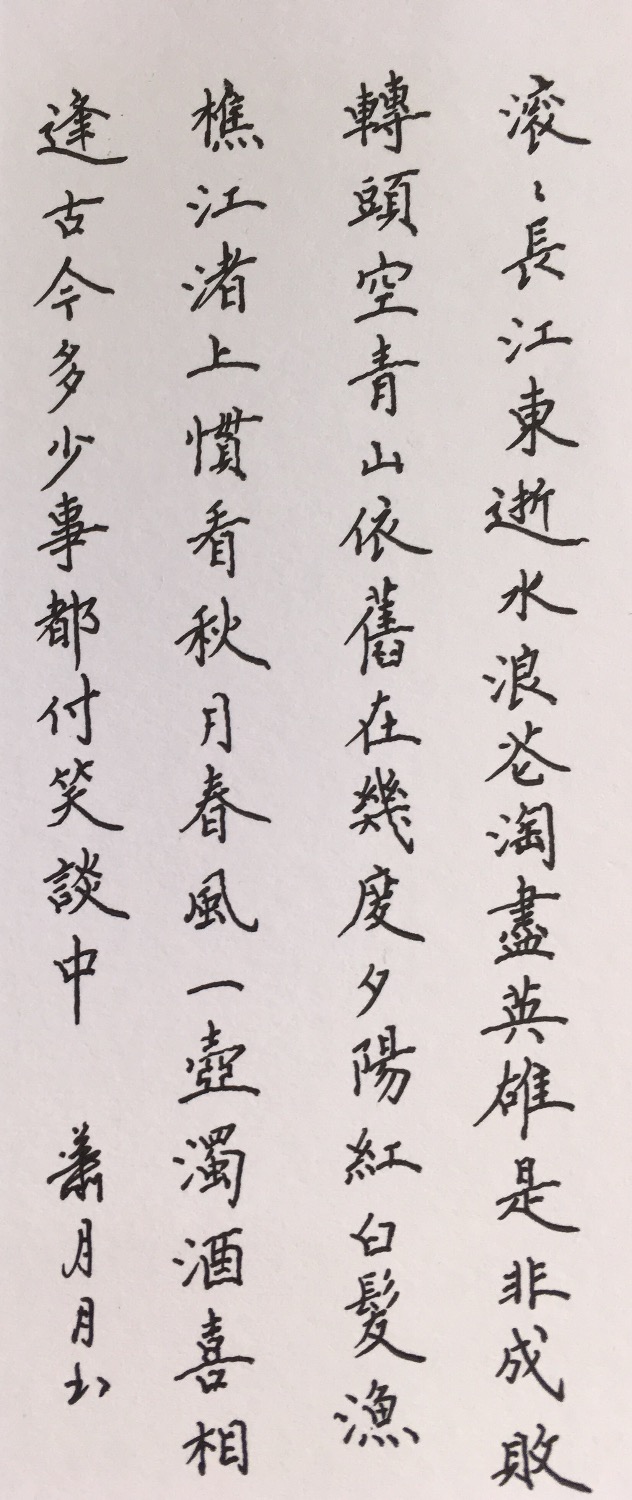 滚〻長江東逝水浪花淘盡英雄是非成敗
轉頭空青山依舊在幾度夕陽紅白髮漁
樵江渚上慣看秋月春風一壺濁酒喜相
逢古今多少事都付笑談中 蕭月月书